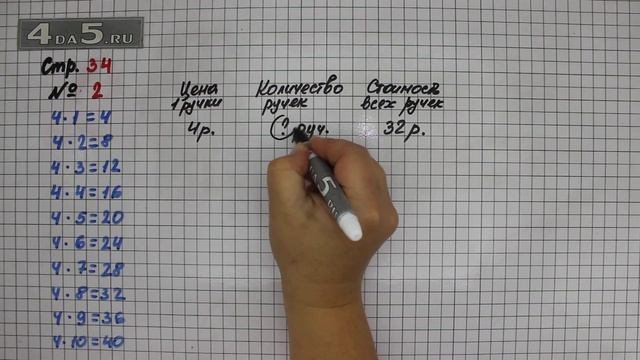 4DA5.RU
Стр. 34
№ 2
4·1=4
4·2=8
4·3=12
4·4=16
4·5=20
4·6=24
4·7=28
4·8=32
4·9=36
4·10=40
Цена Количество Стоимость
1 ручки ручек всех ручек
4р. ? руч. 32р.